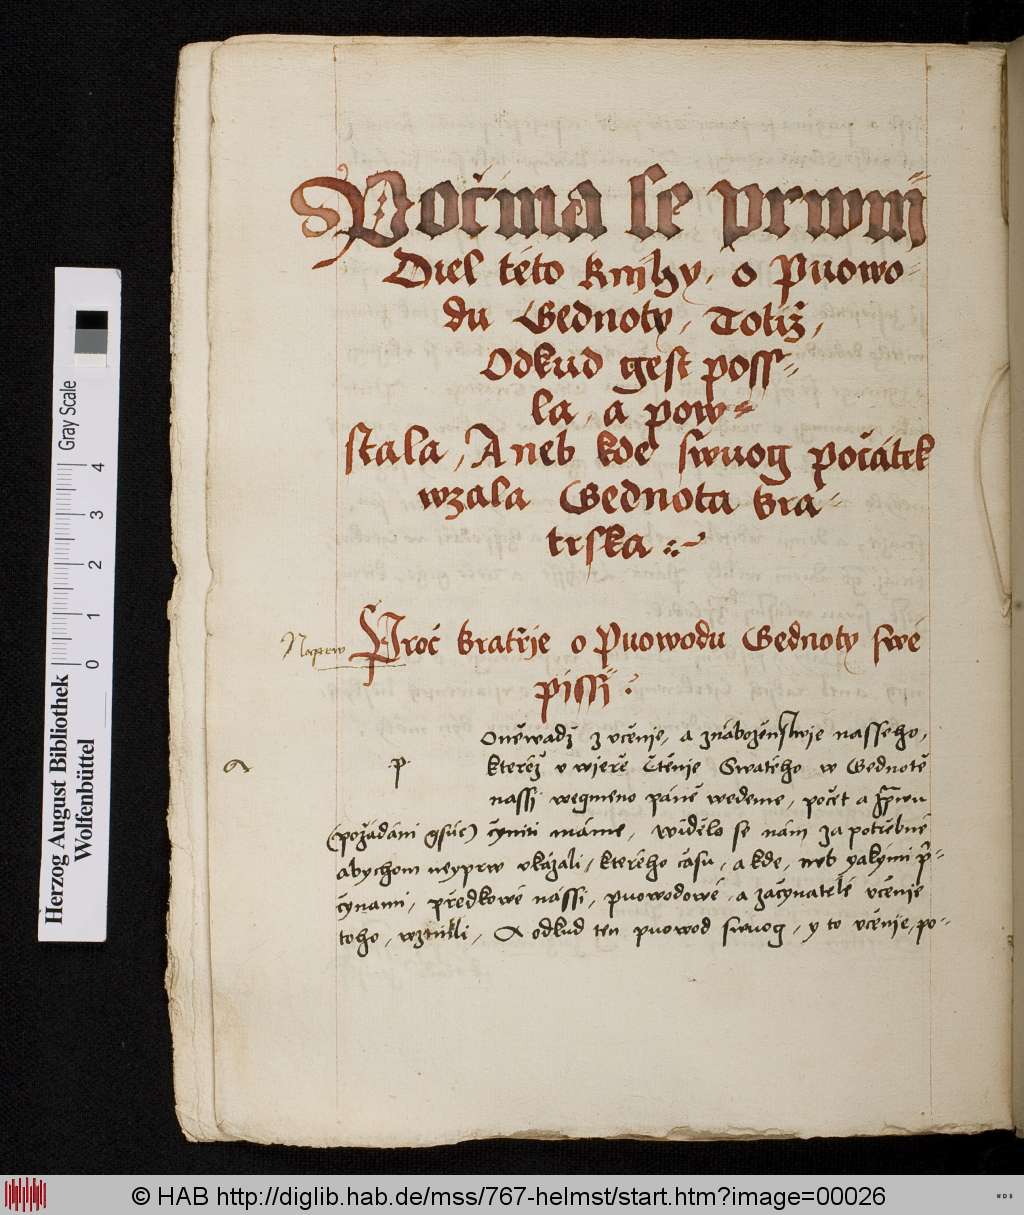 Počína se prwnij
Diel této knijhy, o Puowo-
du Gednoty, Totiž,
Odkud gest poss-
la, a pow-
stala, Aneb kde swuog počátek
wzala Gednota bra-
trska
Naprw Proč bratřije o Puowodu Gednoty swé
pissij
Oněwadž z včenie, a znáboženstwie nasseho,
a p kteréž v wieře Čtenie Swatého w Gednotě
nassi wegmeno páně wedeme, počet a zprawu
(požádáni gsúc) čyniti máme, widělo se nám za potřebné
abychom neyprw vkázali, kterého času, a kde, neb yakými při-
čynami, předkowé nássi, puowodowé, a začynatelé včenie
toho, wznikli, A odkud ten puowod swuog, y to včenie, po-
Herzog August Bibliothek
Wolfenbüttel
0 1 2 3 4
Gray Scale
© HAB http://diglib.hab.de/mss/767-helmst/start.htm?image=00026